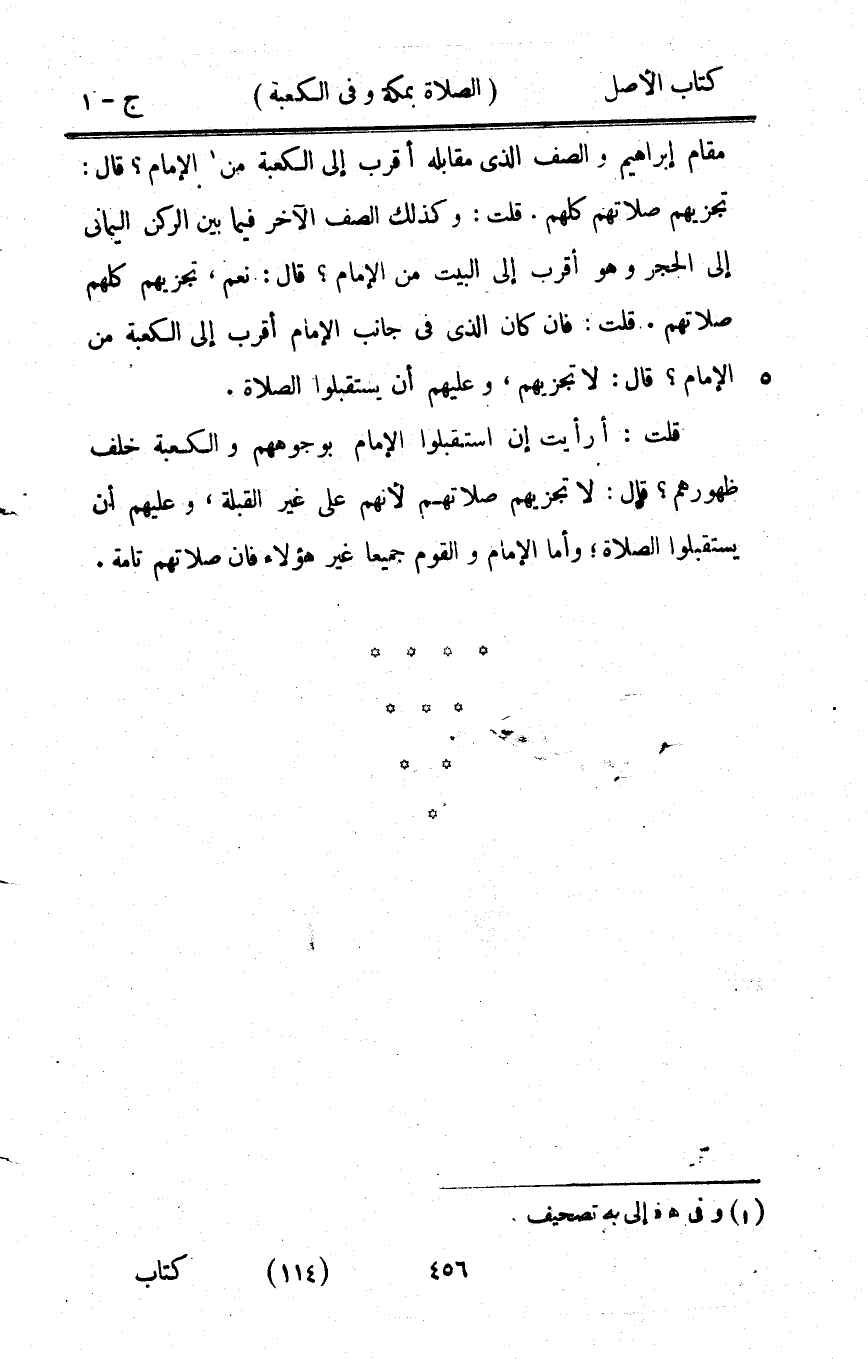 كتاب الأصل (الصلاة بمكة و فى الكعبة) ج - ١
مقام إبراهيم و الصف الذى مقابله أقرب إلى الكعبة من١ الإمام؟ قال:
تجزيهم صلاتهم كلهم. قلت: وكذلك الصف الآخر فيما بين الركن اليمانى
إلى الحجر و هو أقرب إلى البيت من الإمام؟ قال: نعم، تجزيهم كلهم
صلاتهم. قلت: فان كان الذى فى جانب الإمام أقرب إلى الكعبة من
٥ الإمام؟ قال: لا تجزيهم، و عليهم أن يستقبلوا الصلاة.
قلت: أرأيت إن استقبلوا الإمام بوجوههم و الكعبة خلف
ظهورهم؟ قال: لا تجزيهم صلاتهم لأنهم على غير القبلة، و عليهم أن
يستقبلوا الصلاة؛ وأما الإمام و القوم جميعا غير هؤلاء فان صلاتهم تامة.
(١) و فى ه‍ إلى به تصحيف.
٤٥٦ (١١٤) كتاب